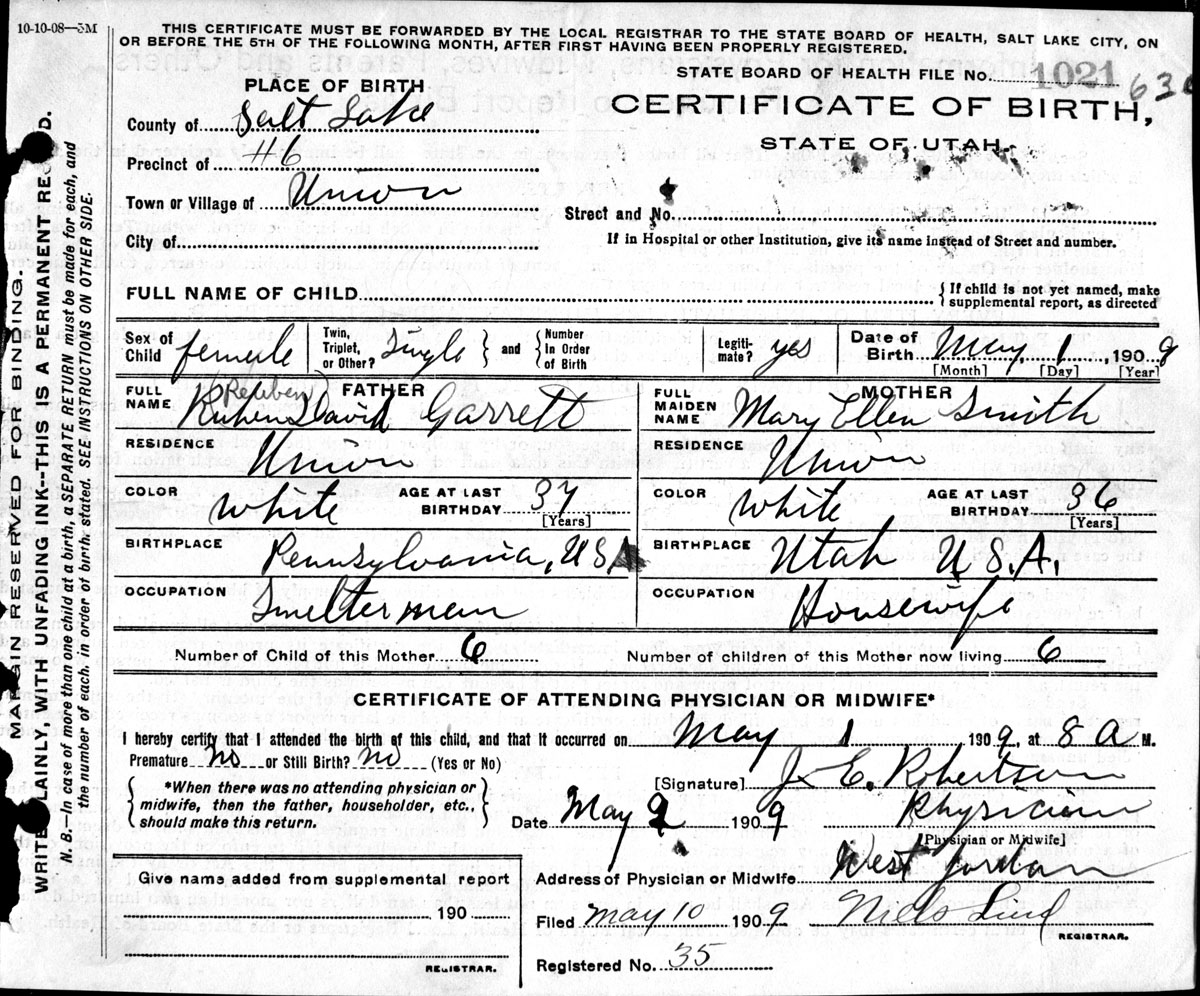 10-10-08—5M
THIS CERTIFICATE MUST BE FORWARDED BY THE LOCAL REGISTRAR TO THE STATE BOARD OF HEALTH, SALT LAKE CITY, ON
OR BEFORE THE 5TH OF THE FOLLOWING MONTH, AFTER FIRST HAVING BEEN PROPERLY REGISTERED.
STATE BOARD OF HEALTH FILE NO. 1021 636
PLACE OF BIRTH
CERTIFICATE OF BIRTH,
STATE OF UTAH.
County of Salt Lake
Precinct of #6
Town or Village of Union
Street and No.
City of
If in Hospital or other Institution, give its name instead of Street and number.
FULL NAME OF CHILD { If child is not yet named, make
supplemental report, as directed
Sex of Child female Twin, Triplet, or Other? Single } and { Number In Order of Birth Legiti-mate? yes Date of Birth May 1, 1909
[Month] [Day] [Year]
FATHER
FULL NAME (Reuben) Ruben David Garrett
RESIDENCE Union
COLOR White AGE AT LAST BIRTHDAY 37 [Years]
BIRTHPLACE Pennsylvania, USA
OCCUPATION Smelterman
MOTHER
FULL MAIDEN NAME Mary Ellen Smith
RESIDENCE Union
COLOR White AGE AT LAST BIRTHDAY 36 [Years]
BIRTHPLACE Utah U.S.A.
OCCUPATION Housewife
Number of Child of this Mother 6 Number of children of this Mother now living 6
CERTIFICATE OF ATTENDING PHYSICIAN OR MIDWIFE*
I hereby certify that I attended the birth of this child, and that it occurred on May 1 1909, at 8 A M.
Premature no or Still Birth? no (Yes or No)
{ *When there was no attending physician or
midwife, then the father, householder, etc.,
should make this return. }
[Signature] J. E. Robertson
Date May 9 1909 Physician
[Physician or Midwife]
Address of Physician or Midwife West Jordan
Filed May 10 1909 Niels Lind
REGISTRAR.
Registered No. 35
Give name added from supplemental report
190
REGISTRAR.
MARGIN RESERVED FOR BINDING.
WRITE PLAINLY, WITH UNFADING INK--THIS IS A PERMANENT RECORD.
N. B.—In case of more than one child at a birth, a SEPARATE RETURN must be made for each, and
the number of each, in order of birth, stated. SEE INSTRUCTIONS ON OTHER SIDE.